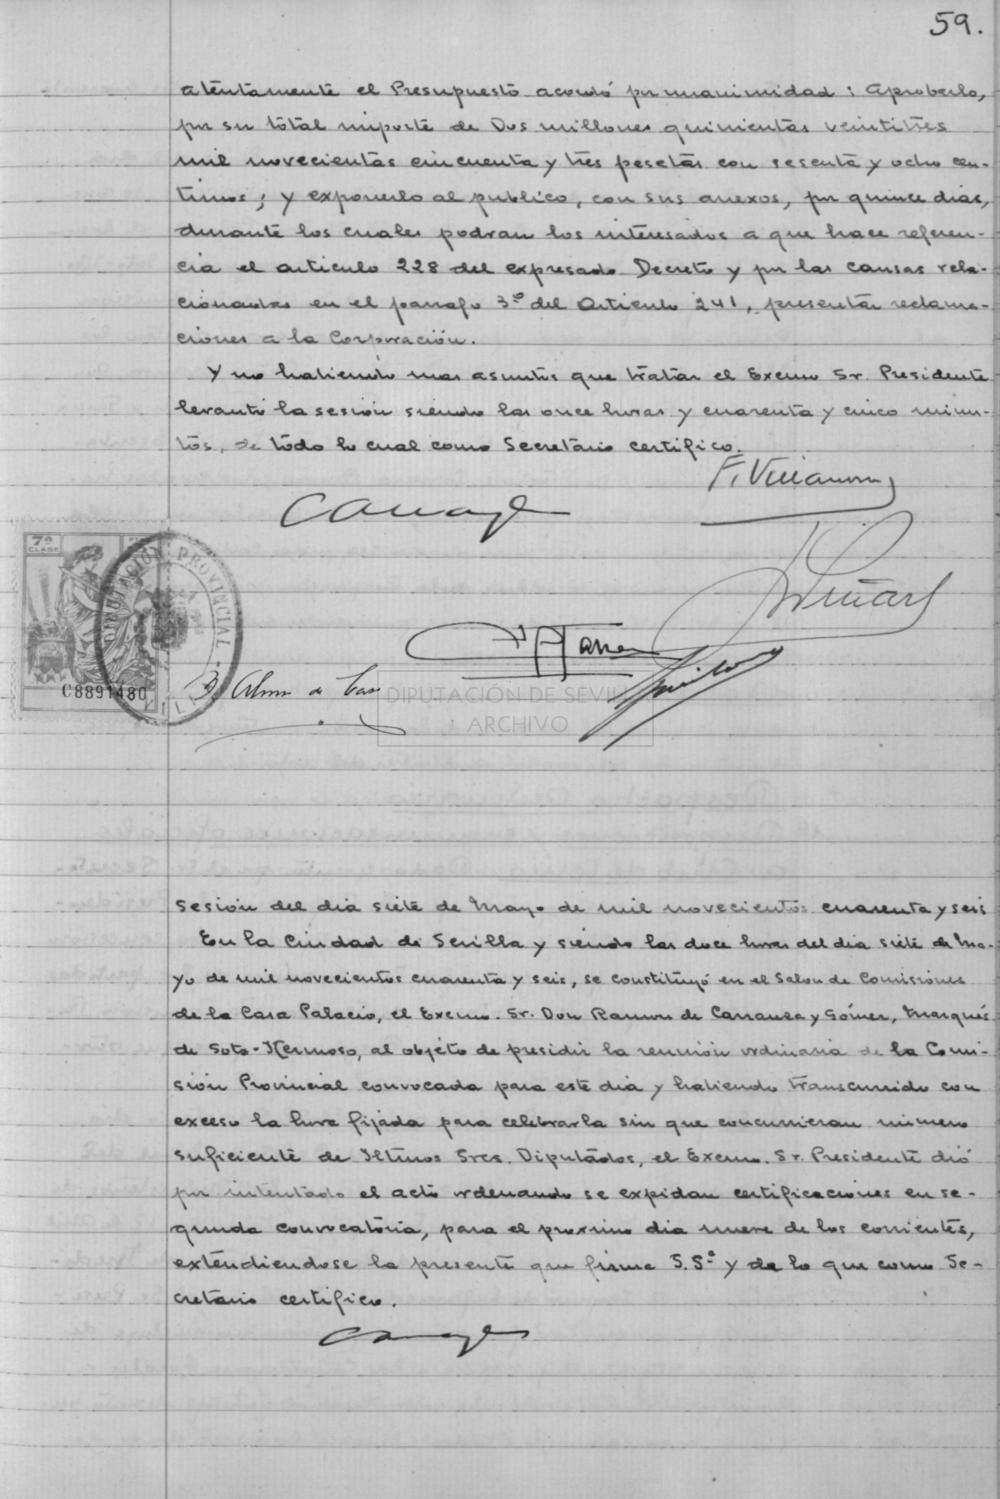 59.
atentamente el Presupuesto acordó por unanimidad: Aprobarlo,
por su total importe de Dos millones quinientas veintitres
mil novecientas cincuenta y tres pesetas con sesenta y ocho cen-
timos; y exponerlo al publico, con sus anexos, por quince dias,
durante los cuales podran los interesados a que hace referen-
cia el articulo 228 del expresado Decreto y por las causas rela-
cionadas en el parrafo 3º del Articulo 241, presentar reclama-
ciones a la Corporación.
Y no habiendo mas asuntos que tratar el Excmo Sr. Presidente
levantó la sesión siendo las once horas y cuarenta y cinco minu-
tos, de todo lo cual como Secretario certifico.
7ª
CLASE
DIPUTACIÓN PROVINCIAL
SEVILLA
C8891480
DIPUTACIÓN DE SEVILLA
ARCHIVO
Sesión del dia siete de Mayo de mil novecientos cuarenta y seis
En la Ciudad de Sevilla y siendo las doce horas del dia siete de Ma-
yo de mil novecientos cuarenta y seis, se constituyó en el Salon de Comisiones
de la Casa Palacio, el Excmo. Sr. Don Ramon de Carranza y Gómez, Marqués
de Soto-Hermoso, al objeto de presidir la reunión ordinaria de la Comi-
sión Provincial convocada para este dia y habiendo transcurrido con
exceso la hora fijada para celebrarla sin que concurrieran número
suficiente de Iltmos Sres. Diputados, el Excmo. Sr. Presidente dió
por intentado el acto ordenando se expidan certificaciones en se-
gunda convocatoria, para el proximo dia nueve de los corrientes,
extendiendose la presente que firma S.Sª y de lo que como Se-
cretario certifico.